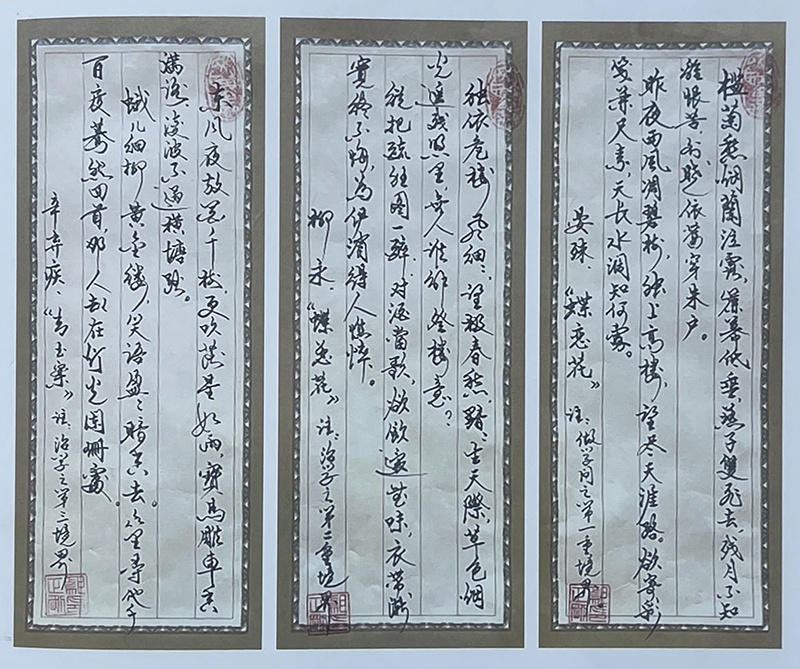 槛菊愁烟蘭泣露,羅幕低垂,燕子雙飞去,残月不知
離恨苦,斜晓依舊穿朱户。
昨夜西风凋碧树,独上高楼,望尽天涯路。欲寄彩
笺并尺素,天长水阔知何處。
晏殊、《蝶恋花》 注:做学问之第一重境界
独依危楼风细〻,望极春愁,黯〻生天際,草色烟
光遥残照里无人谁解登楼意?
拟把疏狂图一醉,对酒當歌,欲饮還無味,衣带渐
宽终不悔,为伊消得人憔悴。
柳永《蝶恋花》 注:治学之第二重境界
东风夜放花千树,更吹落星如雨,寶马雕車香
满路凌波不過横塘路。
蛾儿细柳黄金缕,笑语盈〻暗香去。众里寻他千
百度蓦然回首,那人却在灯光阑珊處。
辛弃疾、《青玉案》 注:治学之第三境界